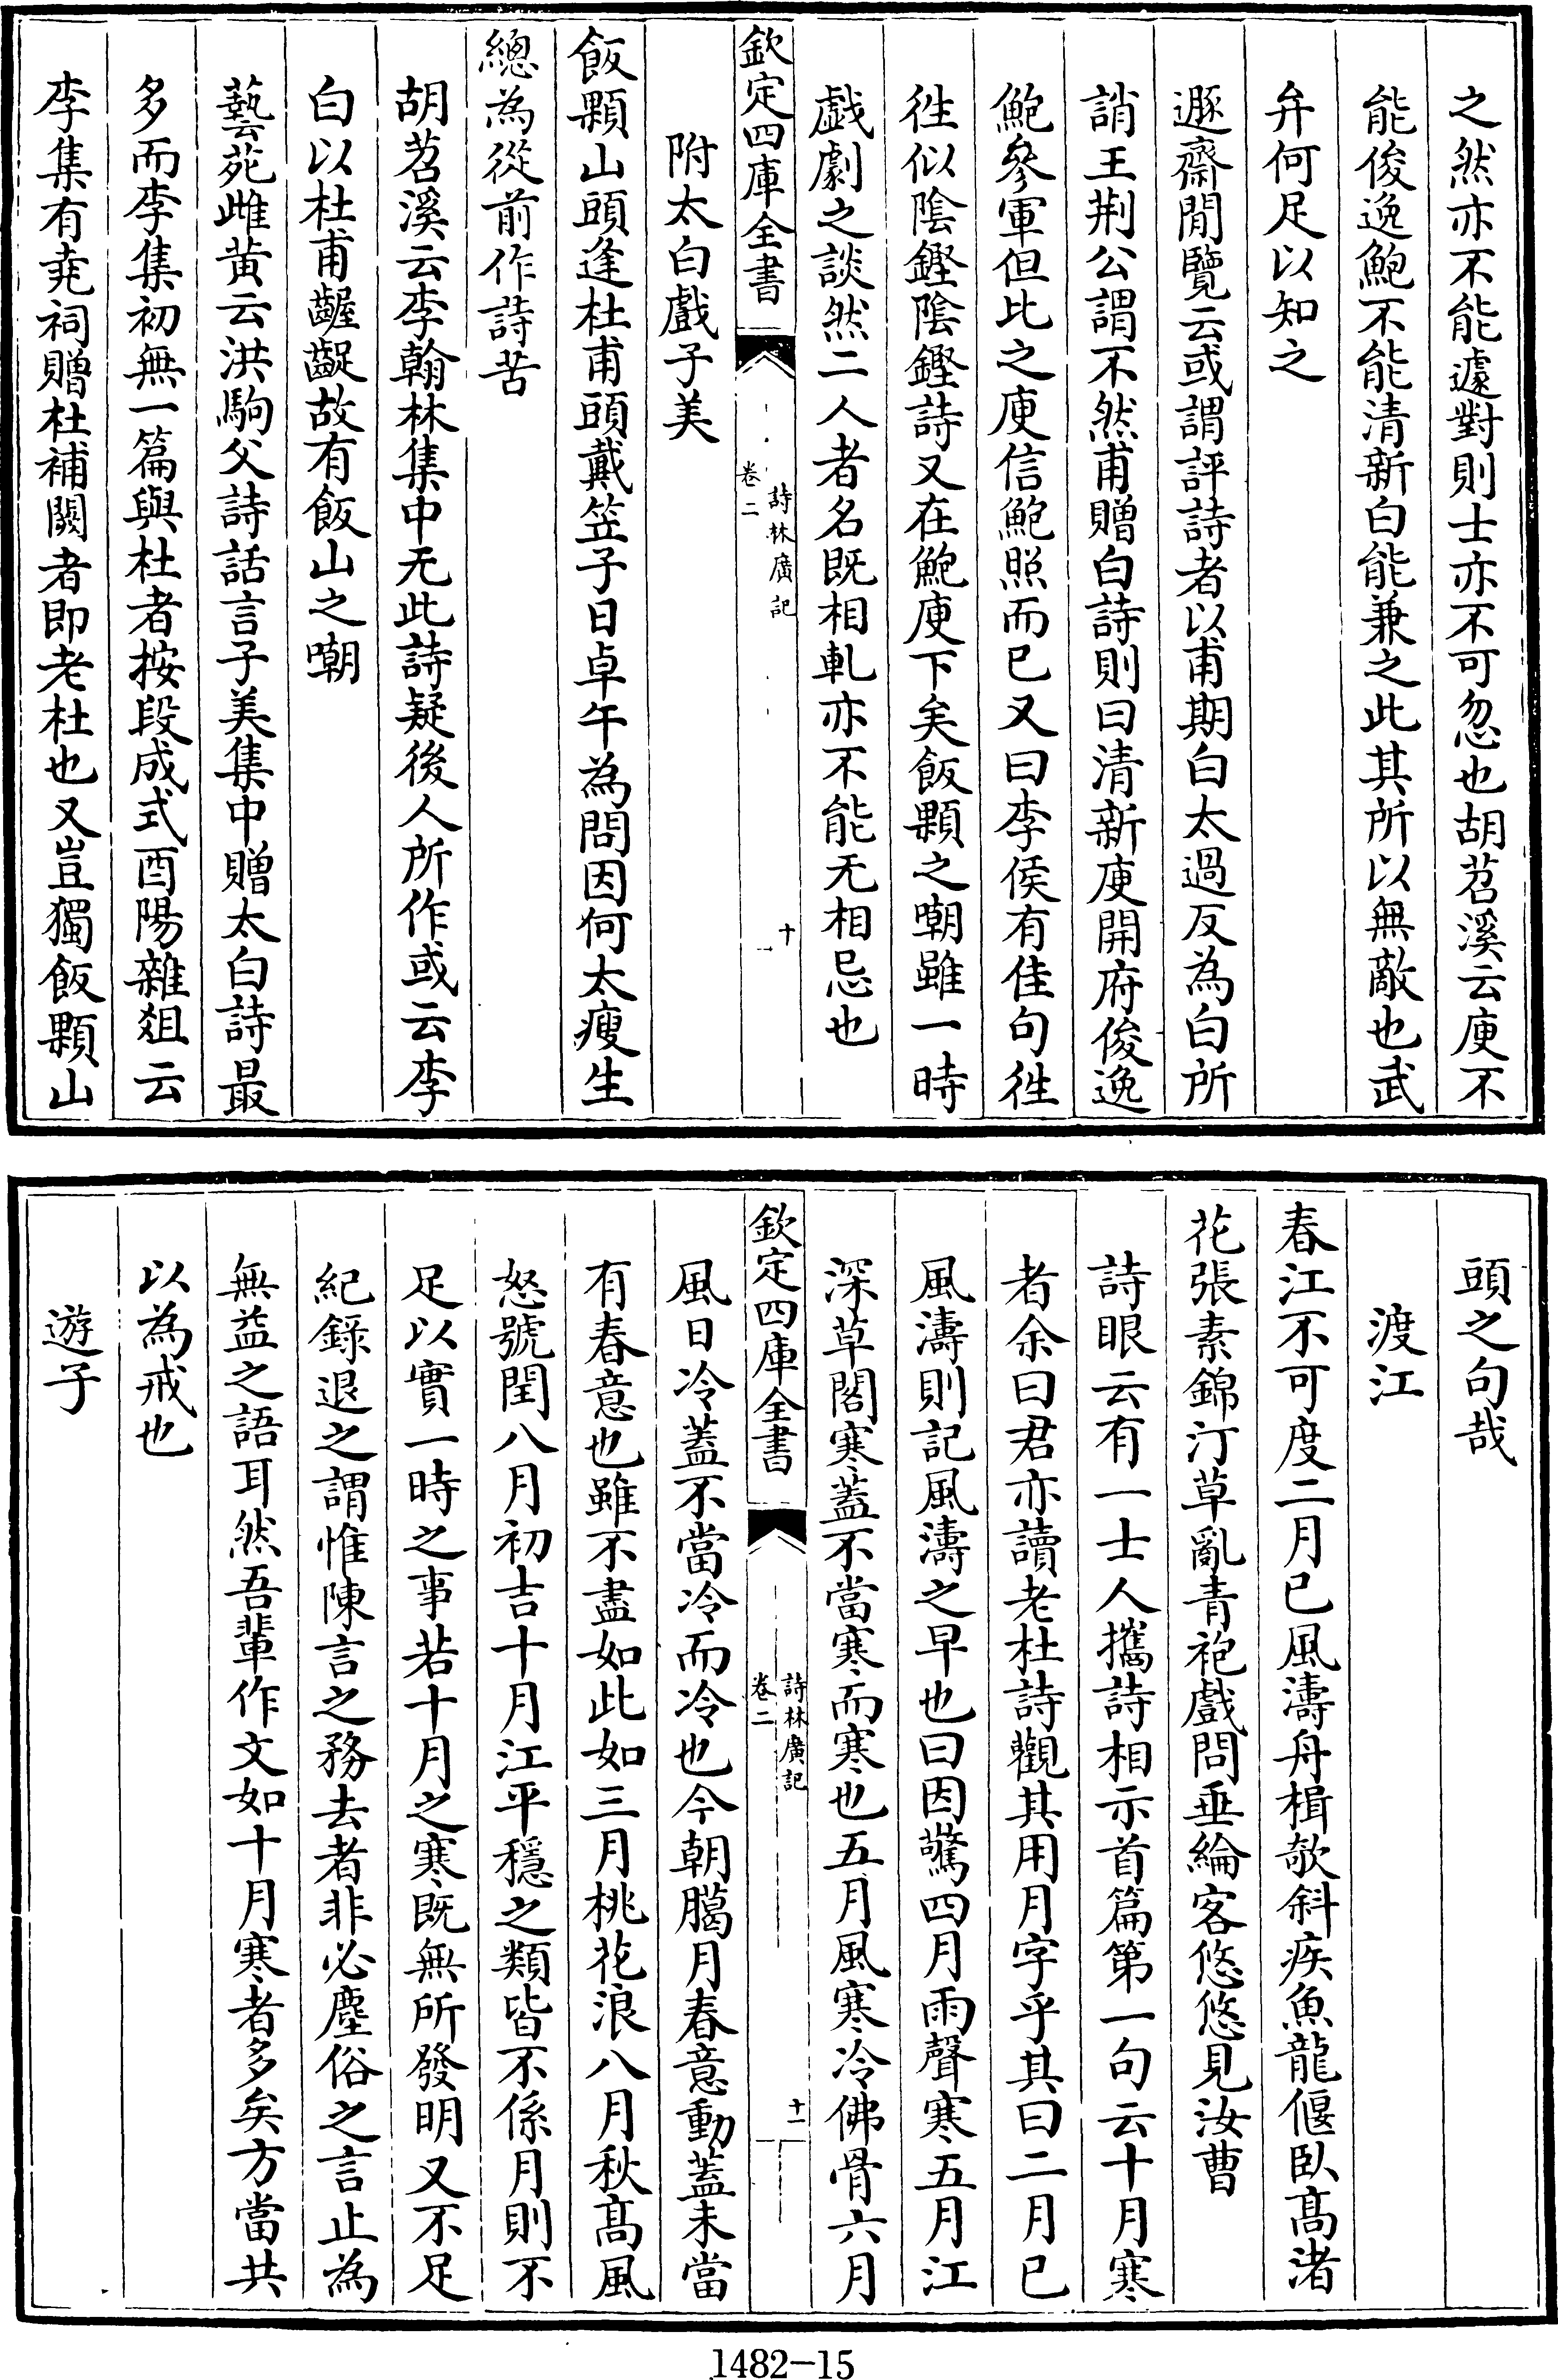 之然亦不能遽對則士亦不可忽也胡苕溪云庾不
能俊逸鮑不能清新白能兼之此其所以無敵也武
弁何足以知之
遯齋閒覽云或謂評詩者以甫期白太過反為白所
誚王荆公謂不然甫贈白詩則曰清新庾開府俊逸
鮑參軍但比之庾信鮑照而已又曰李侯有佳句徃
徃似隂鏗隂鏗詩又在鮑庾下矣飯顆之嘲雖一時
戯劇之談然二人者名既相軋亦不能无相忌也
欽定四庫全書
詩林廣記
卷二
十
附太白戲子美
飯顆山頭逢杜甫頭戴笠子日卓午為問因何太瘦生
總為從前作詩苦
胡苕溪云李翰林集中无此詩疑後人所作或云李
白以杜甫齷齪故有飯山之嘲
藝苑雌黄云洪駒父詩話言子美集中贈太白詩最
多而李集初無一篇與杜者按段成式酉陽雜俎云
李集有堯祠贈杜補闕者即老杜也又豈獨飯顆山
頭之句哉
渡江
春江不可度二月已風濤舟楫欹斜疾魚龍偃臥髙渚
花張素錦汀草亂青袍戲問垂綸客悠悠見汝曹
詩眼云有一士人攜詩相示首篇第一句云十月寒
者余曰君亦讀老杜詩觀其用月字乎其曰二月已
風濤則記風濤之早也曰因驚四月雨聲寒五月江
深草閣寒蓋不當寒而寒也五月風寒冷佛骨六月
欽定四庫全書
詩林廣記
卷二
十一
風日冷蓋不當冷而冷也今朝臈月春意動蓋未當
有春意也雖不盡如此如三月桃花浪八月秋髙風
怒號閏八月初吉十月江平穩之類皆不係月則不
足以實一時之事若十月之寒既無所發明又不足
紀錄退之謂惟陳言之務去者非必塵俗之言止為
無益之語耳然吾輩作文如十月寒者多矣方當共
以為戒也
遊子
1482-15